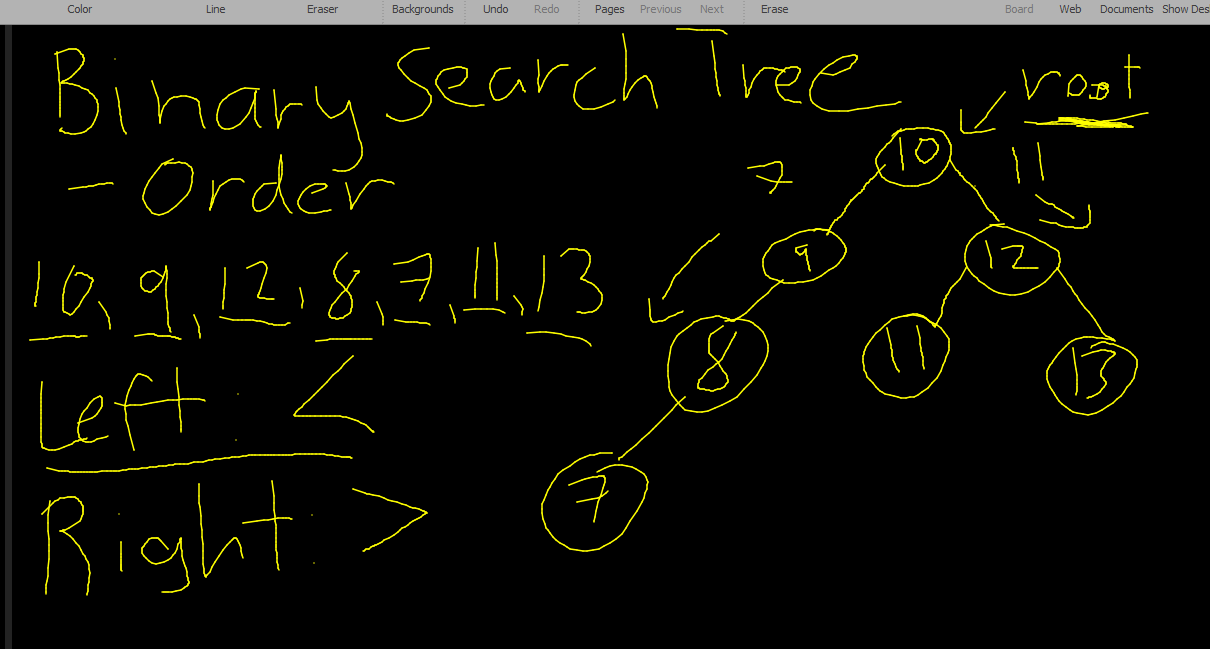 Color Line Eraser Backgrounds Undo Redo Pages Previous Next Erase Board Web Documents Show Des
Binary Search Tree
root
- Order
10, 9, 12, 8, 7, 11, 13
Left: <
Right: >
10
7
11
9
12
8
11
13
7